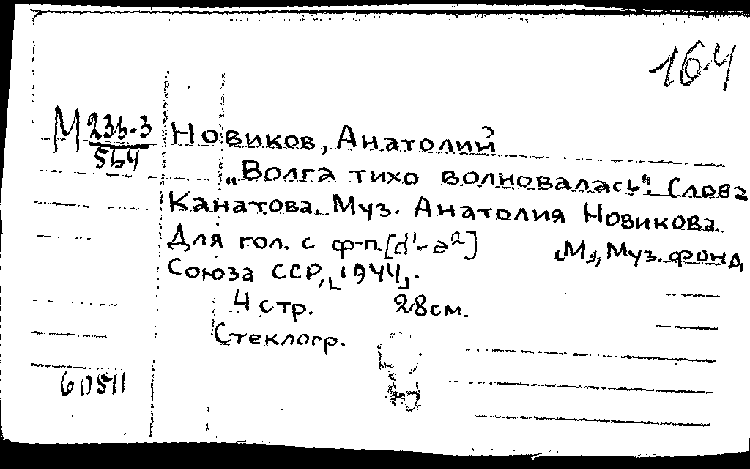 164
М 236-3
564
Новиков, Анатолий
„Волга тихо волновалась". Слова
Канатова. Муз. Анатолия Новикова.
Для гол. с ф-п. [d¹-a²] М., Муз. фонд
Союза ССР, [1944].
4 стр. 28 см.
Стеклогр.